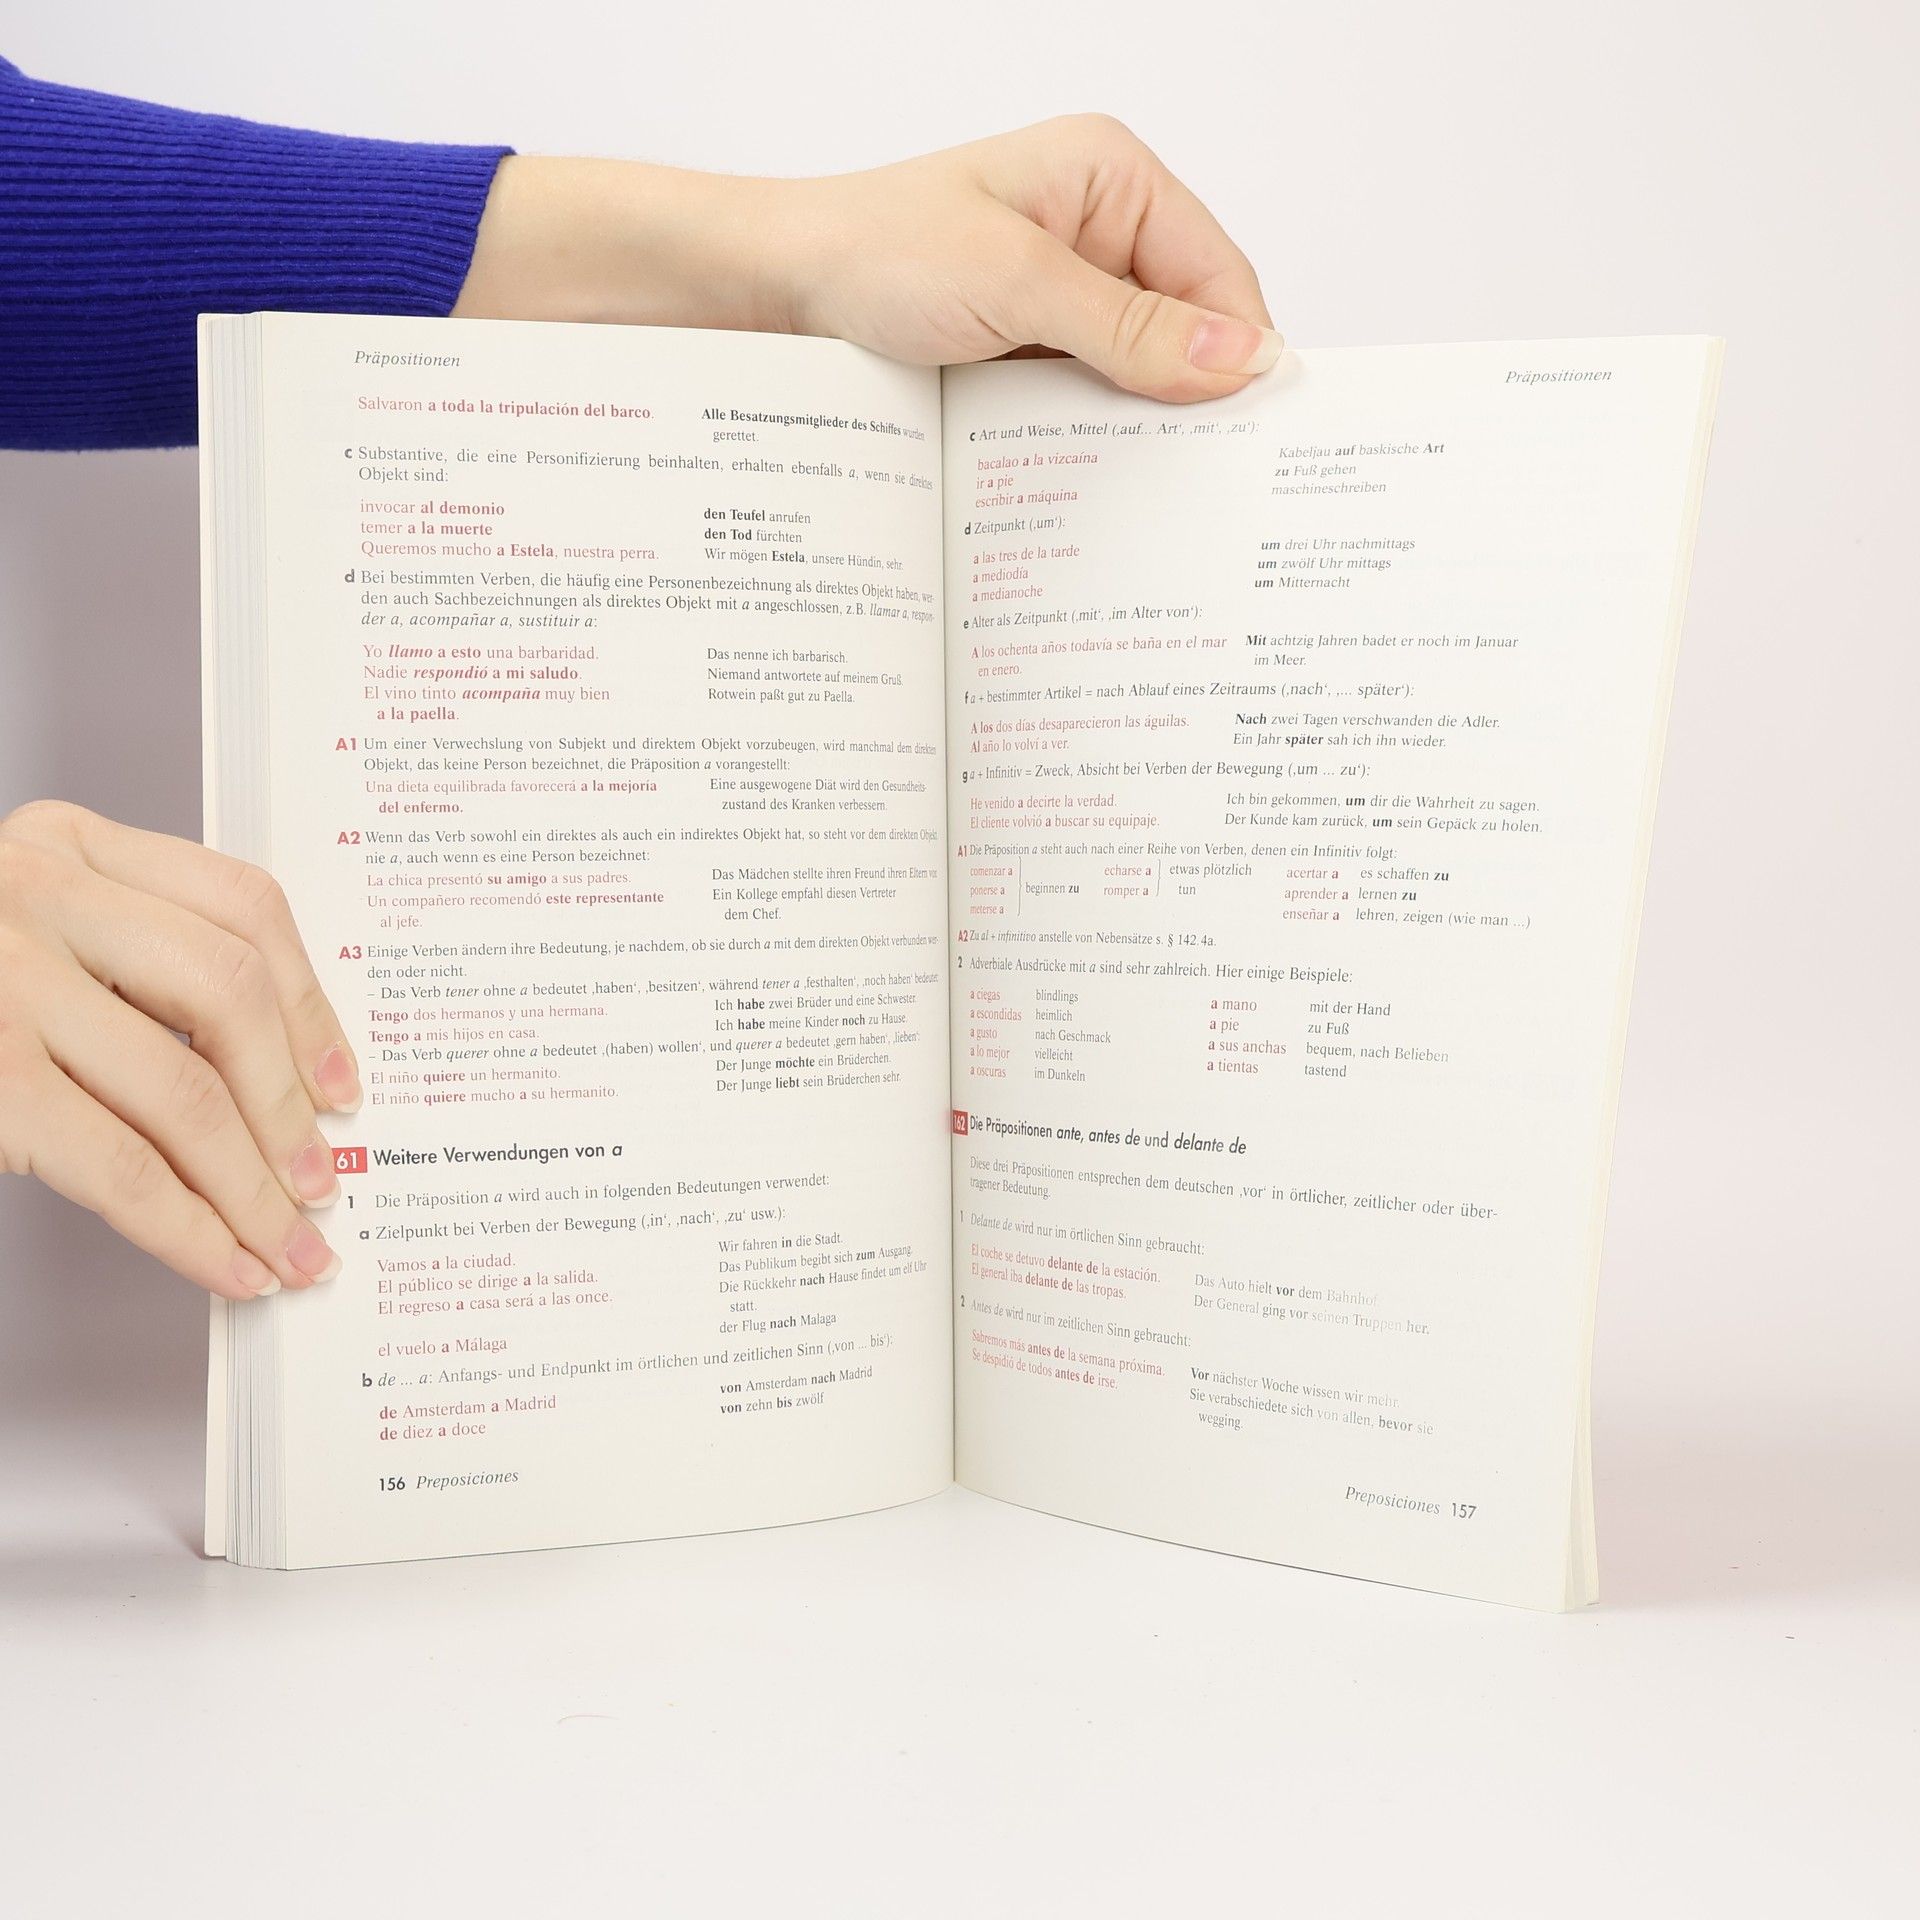 Präpositionen
Salvaron a toda la tripulación del barco.
Alle Besatzungsmitglieder des Schiffes wurden
gerettet.
c Substantive, die eine Personifizierung beinhalten, erhalten ebenfalls a, wenn sie direktes
Objekt sind:
invocar al demonio
den Teufel anrufen
temer a la muerte
den Tod fürchten
Queremos mucho a Estela, nuestra perra.
Wir mögen Estela, unsere Hündin, sehr.
d Bei bestimmten Verben, die häufig eine Personenbezeichnung als direktes Objekt haben, wer-
den auch Sachbezeichnungen als direktes Objekt mit a angeschlossen, z.B. llamar a, respon-
der a, acompañar a, sustituir a:
Yo llamo a esto una barbaridad.
Das nenne ich barbarisch.
Nadie respondió a mi saludo.
Niemand antwortete auf meinem Gruß.
El vino tinto acompaña muy bien
Rotwein paßt gut zu Paella.
a la paella.
A1 Um einer Verwechslung von Subjekt und direktem Objekt vorzubeugen, wird manchmal dem direkten
Objekt, das keine Person bezeichnet, die Präposition a vorangestellt:
Una dieta equilibrada favorecerá a la mejoría
Eine ausgewogene Diät wird den Gesundheits-
del enfermo.
zustand des Kranken verbessern.
A2 Wenn das Verb sowohl ein direktes als auch ein indirektes Objekt hat, so steht vor dem direkten Objekt
nie a, auch wenn es eine Person bezeichnet:
La chica presentó su amigo a sus padres.
Das Mädchen stellte ihren Freund ihren Eltern vor.
Un compañero recomendó este representante
Ein Kollege empfahl diesen Vertreter
al jefe.
dem Chef.
A3 Einige Verben ändern ihre Bedeutung, je nachdem, ob sie durch a mit dem direkten Objekt verbunden wer-
den oder nicht.
– Das Verb tener ohne a bedeutet ‚haben‘, ‚besitzen‘, während tener a ‚festhalten‘, ‚noch haben‘ bedeutet:
Tengo dos hermanos y una hermana.
Ich habe zwei Brüder und eine Schwester.
Tengo a mis hijos en casa.
Ich habe meine Kinder noch zu Hause.
– Das Verb querer ohne a bedeutet ‚(haben) wollen‘, und querer a bedeutet ‚gern haben‘, ‚lieben‘:
El niño quiere un hermanito.
Der Junge möchte ein Brüderchen.
El niño quiere mucho a su hermanito.
Der Junge liebt sein Brüderchen sehr.
61 Weitere Verwendungen von a
1 Die Präposition a wird auch in folgenden Bedeutungen verwendet:
a Zielpunkt bei Verben der Bewegung (‚in‘, ‚nach‘, ‚zu‘ usw.):
Vamos a la ciudad.
Wir fahren in die Stadt.
El público se dirige a la salida.
Das Publikum begibt sich zum Ausgang.
El regreso a casa será a las once.
Die Rückkehr nach Hause findet um elf Uhr
statt.
el vuelo a Málaga
der Flug nach Malaga
b de ... a: Anfangs- und Endpunkt im örtlichen und zeitlichen Sinn (‚von ... bis‘):
de Amsterdam a Madrid
von Amsterdam nach Madrid
de diez a doce
von zehn bis zwölf
156 Preposiciones
Präpositionen
c Art und Weise, Mittel (‚auf... Art‘, ‚mit‘, ‚zu‘):
bacalao a la vizcaína
Kabeljau auf baskische Art
ir a pie
zu Fuß gehen
escribir a máquina
maschineschreiben
d Zeitpunkt (‚um‘):
a las tres de la tarde
um drei Uhr nachmittags
a mediodía
um zwölf Uhr mittags
a medianoche
um Mitternacht
e Alter als Zeitpunkt (‚mit‘, ‚im Alter von‘):
A los ochenta años todavía se baña en el mar
Mit achtzig Jahren badet er noch im Januar
en enero.
im Meer.
f a + bestimmter Artikel = nach Ablauf eines Zeitraums (‚nach‘, ‚... später‘):
A los dos días desaparecieron las águilas.
Nach zwei Tagen verschwanden die Adler.
Al año lo volví a ver.
Ein Jahr später sah ich ihn wieder.
g a + Infinitiv = Zweck, Absicht bei Verben der Bewegung (‚um ... zu‘):
He venido a decirte la verdad.
Ich bin gekommen, um dir die Wahrheit zu sagen.
El cliente volvió a buscar su equipaje.
Der Kunde kam zurück, um sein Gepäck zu holen.
A1 Die Präposition a steht auch nach einer Reihe von Verben, denen ein Infinitiv folgt:
comenzar a
echarse a
etwas plötzlich
acertar a es schaffen zu
ponerse a
beginnen zu
romper a
tun
aprender a lernen zu
meterse a
enseñar a lehren, zeigen (wie man ...)
A2 Zu al + infinitivo anstelle von Nebensätze s. § 142.4a.
2 Adverbiale Ausdrücke mit a sind sehr zahlreich. Hier einige Beispiele:
a ciegas blindlings
a mano mit der Hand
a escondidas heimlich
a pie zu Fuß
a gusto nach Geschmack
a sus anchas bequem, nach Belieben
a lo mejor vielleicht
a tientas tastend
a oscuras im Dunkeln
162 Die Präpositionen ante, antes de und delante de
Diese drei Präpositionen entsprechen dem deutschen ‚vor‘ in örtlicher, zeitlicher oder über-
tragener Bedeutung.
1 Delante de wird nur im örtlichen Sinn gebraucht:
El coche se detuvo delante de la estación.
Das Auto hielt vor dem Bahnhof
El general iba delante de las tropas.
Der General ging vor seinen Truppen her.
2 Antes de wird nur im zeitlichen Sinn gebraucht:
Sabremos más antes de la semana próxima.
Vor nächster Woche wissen wir mehr.
Se despidió de todos antes de irse.
Sie verabschiedete sich von allen, bevor sie
wegging.
Preposiciones 157